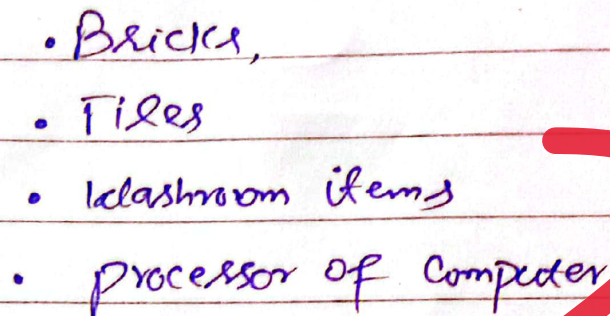 • Bricks,
• Tiles
• Washroom items
• processor of Computer